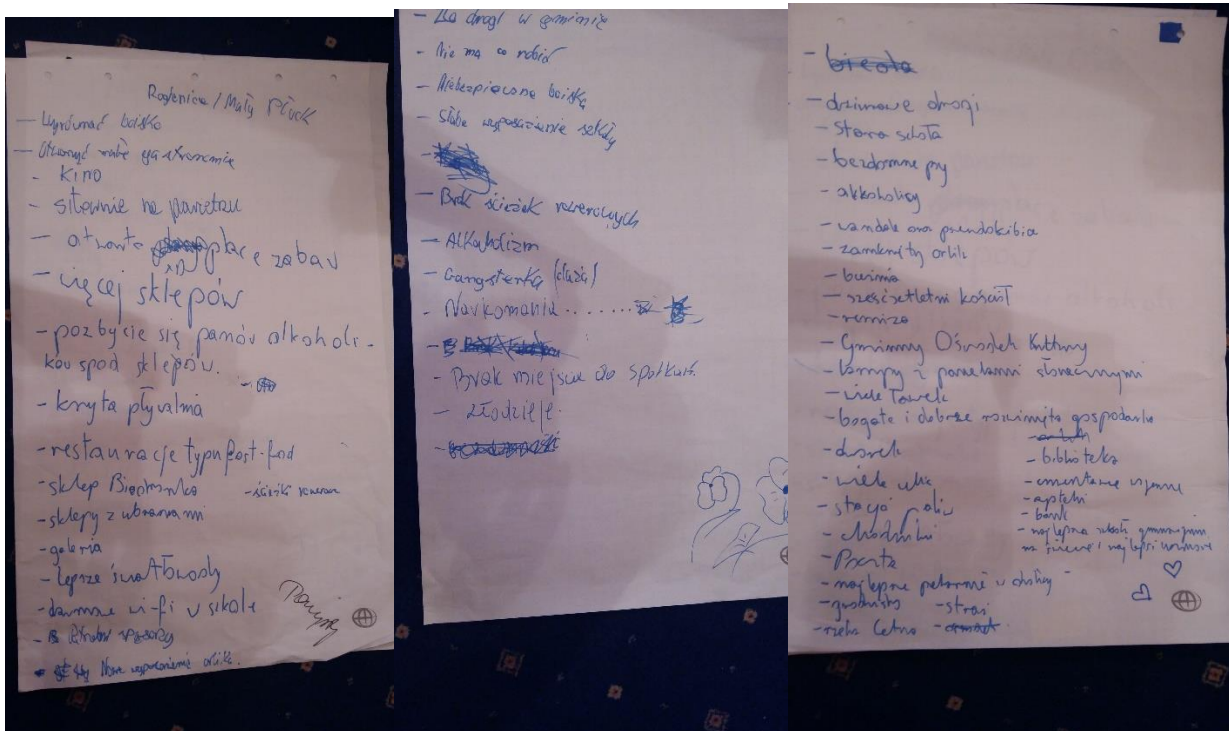 Rogienice / Mały Płock
- Wyrównać boisko
- Otworzyć małe gastronomie
- Kino
- siłownie na powietrzu
- otwarte place zabaw
- więcej sklepów
- pozbycie się panów alkoholi-
ków spod sklepów.
- kryta pływalnia
- restauracje typu fast-food
- sklep Biedronka - ścieżki rowerowe
- sklepy z ubraniami
- galeria
- lepsze światłowody
- darmowe wi-fi w szkole
- Nowe wyposażenie orlika.
- Złe drogi w gminie
- Nie ma co robić
- Niebezpieczne boisko
- Słabe wyposażenie szkoły
- Brak ścieżek rowerowych
- Alkoholizm
- Gangsterka (duża)
- Narkomania........
- Brak miejsca do spotkań.
- złodzieje.
- bieda
- dziurawe drogi
- stara szkoła
- bezdomne psy
- alkoholicy
- wandale oraz pseudokibice
- zamknięty orlik
- sześćsetletni kościół
- remiza
- Gminny Ośrodek Kultury
- lampy z panelami słonecznymi
- wiele ławek
- bogate i dobrze rozwinięte gospodarstwa
- dworek
- biblioteka
- wiele ulic
- cmentarze
- stacja paliw
- apteki
- bank
- Chodniki
- najlepsza szkoła
- Poczta
- najlepsze w okolicy
- straż
- rzeka Cetna